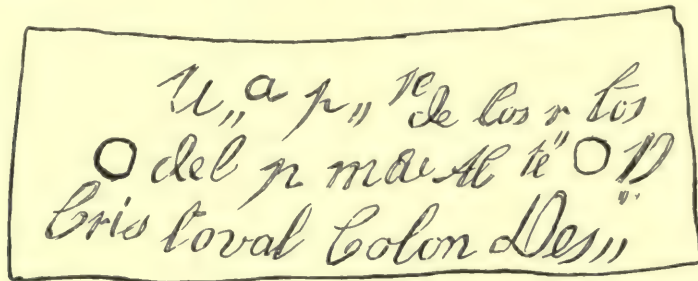 U,,a p,,te de los r tos
del p mer Al te" D"
Cris toval Colon Des,,